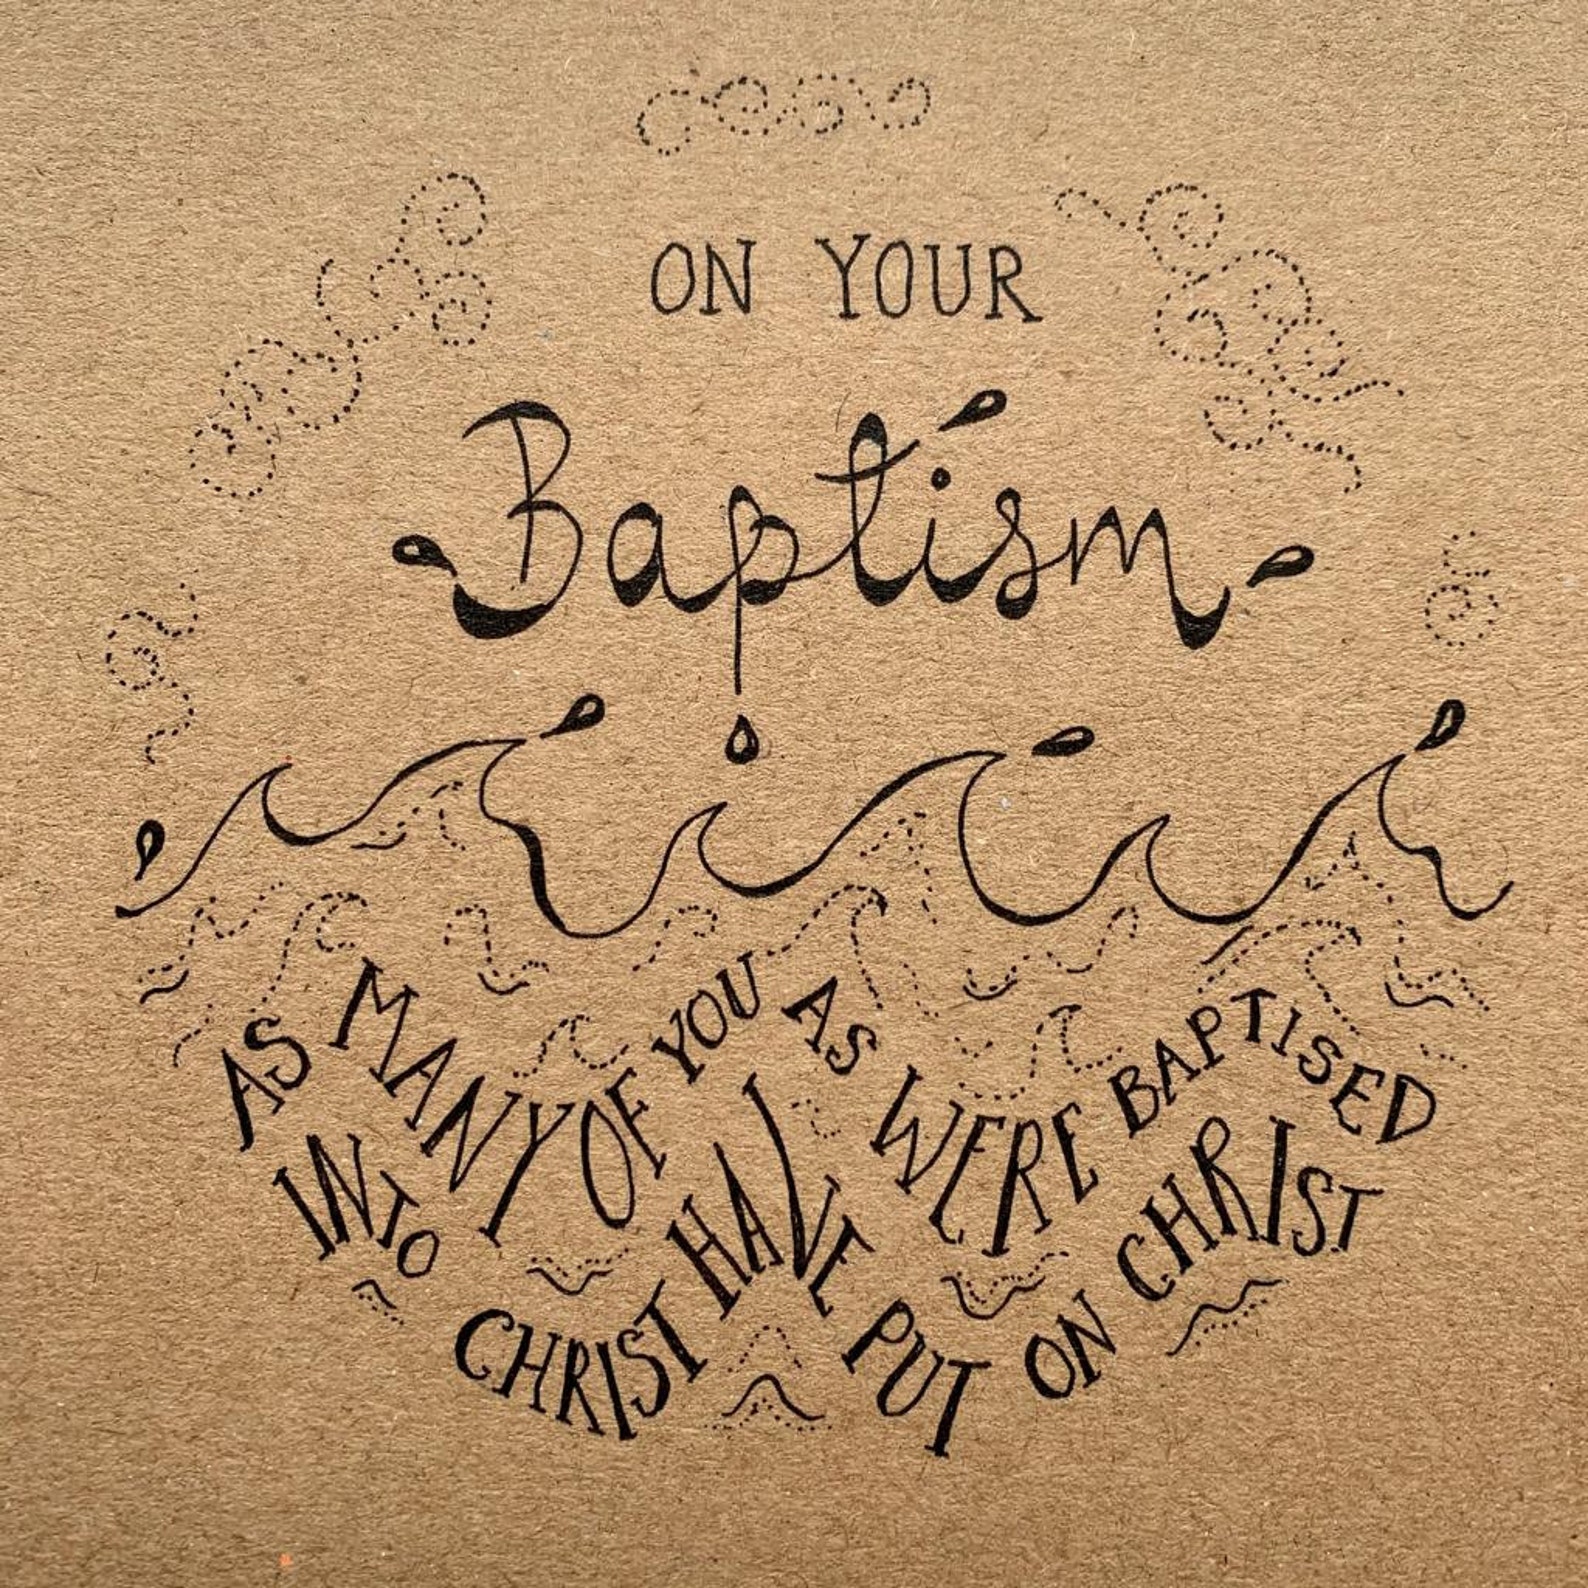 ON YOUR
Baptism
AS MANY OF YOU AS WERE BAPTISED
INTO CHRIST HAVE PUT ON CHRIST